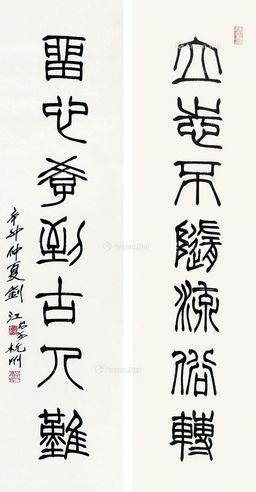 立志不隨流俗轉
留心學到古人難
辛卯仲夏劉江 杭州